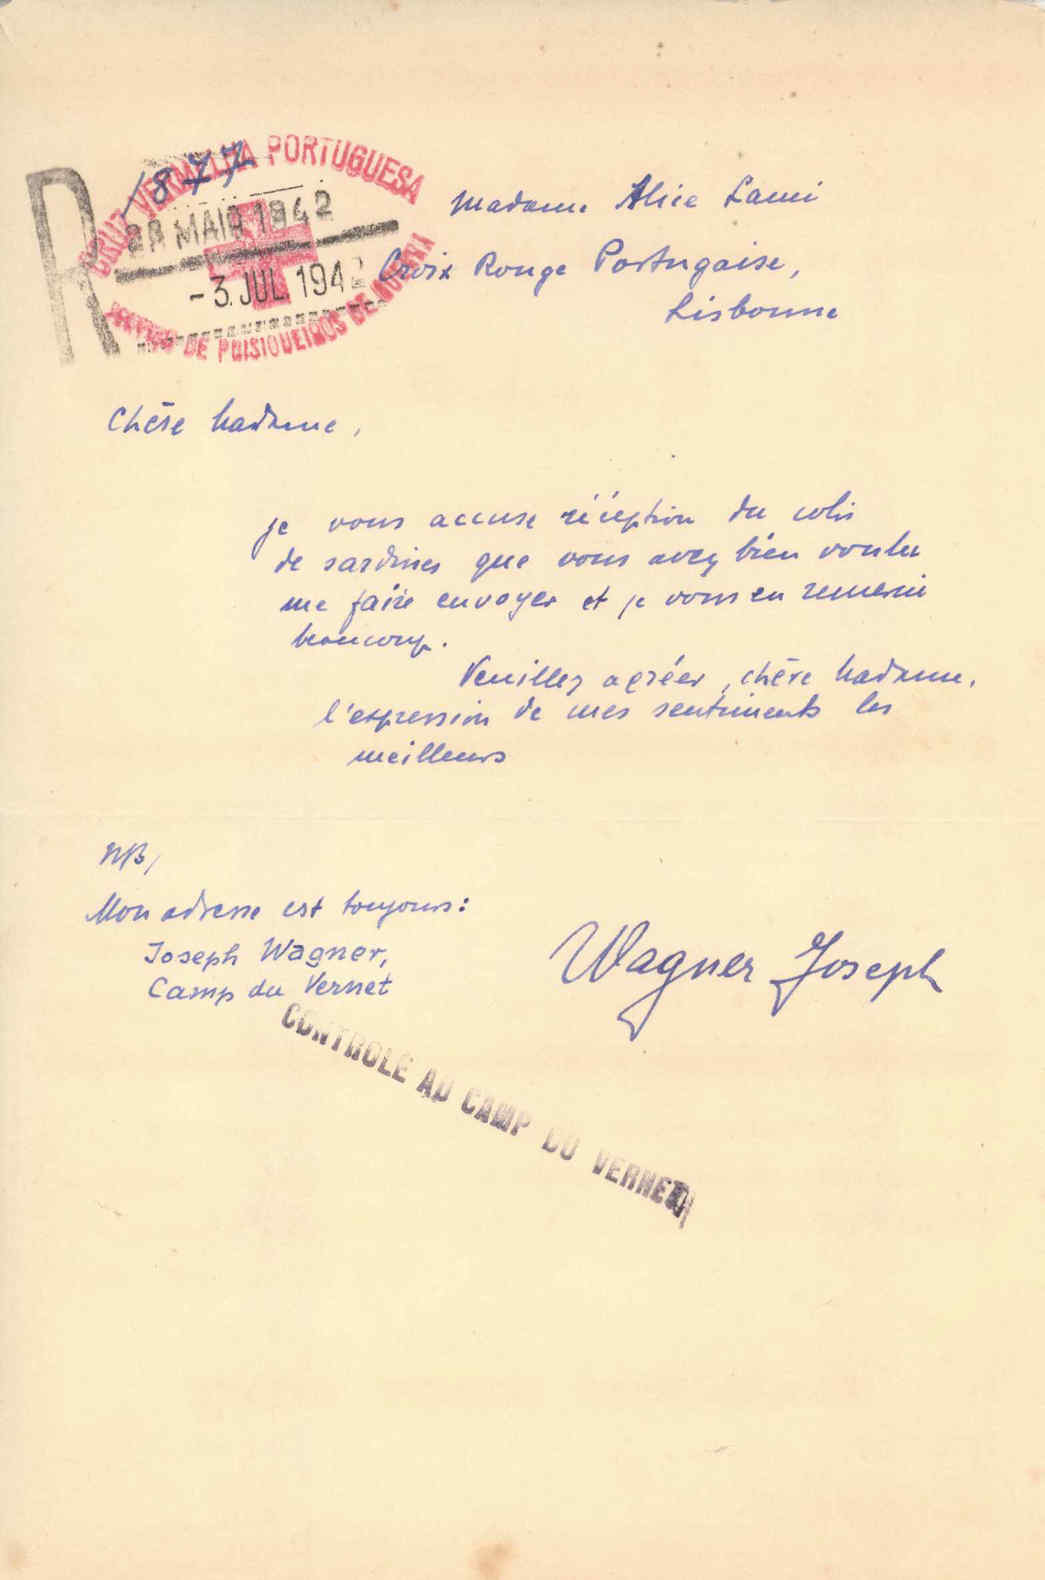 1877
CRUZ VERMELHA PORTUGUESA
R
28 MAIO 1942
-3. JUL. 1942
DE PRISIONEIROS DE GUERRA
Madame Alice Lami
Croix Rouge Portugaise,
Lisbonne
Chère Madame,
je vous accuse réception du colis
de sardines que vous avez bien voulu
me faire envoyer et je vous en remercie
beaucoup.
Veuillez agréer, chère Madame,
l'expression de mes sentiments les
meilleurs
NB/
Mon adresse est toujours:
Joseph Wagner,
Camp du Vernet
Wagner Joseph
CONTROLÉ AU CAMP DU VERNET